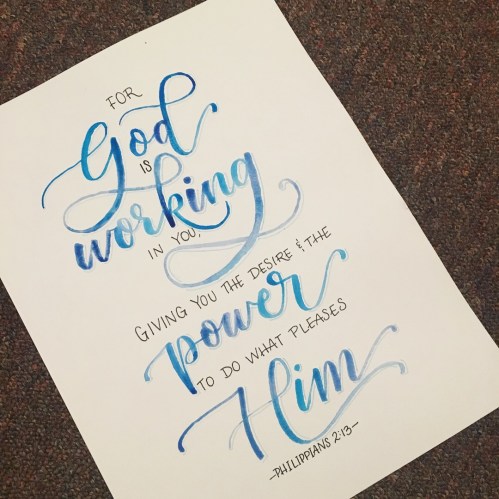 FOR
God
IS
working
IN YOU,
GIVING YOU THE DESIRE & THE
power
TO DO WHAT PLEASES
Him
-PHILIPPIANS 2:13-